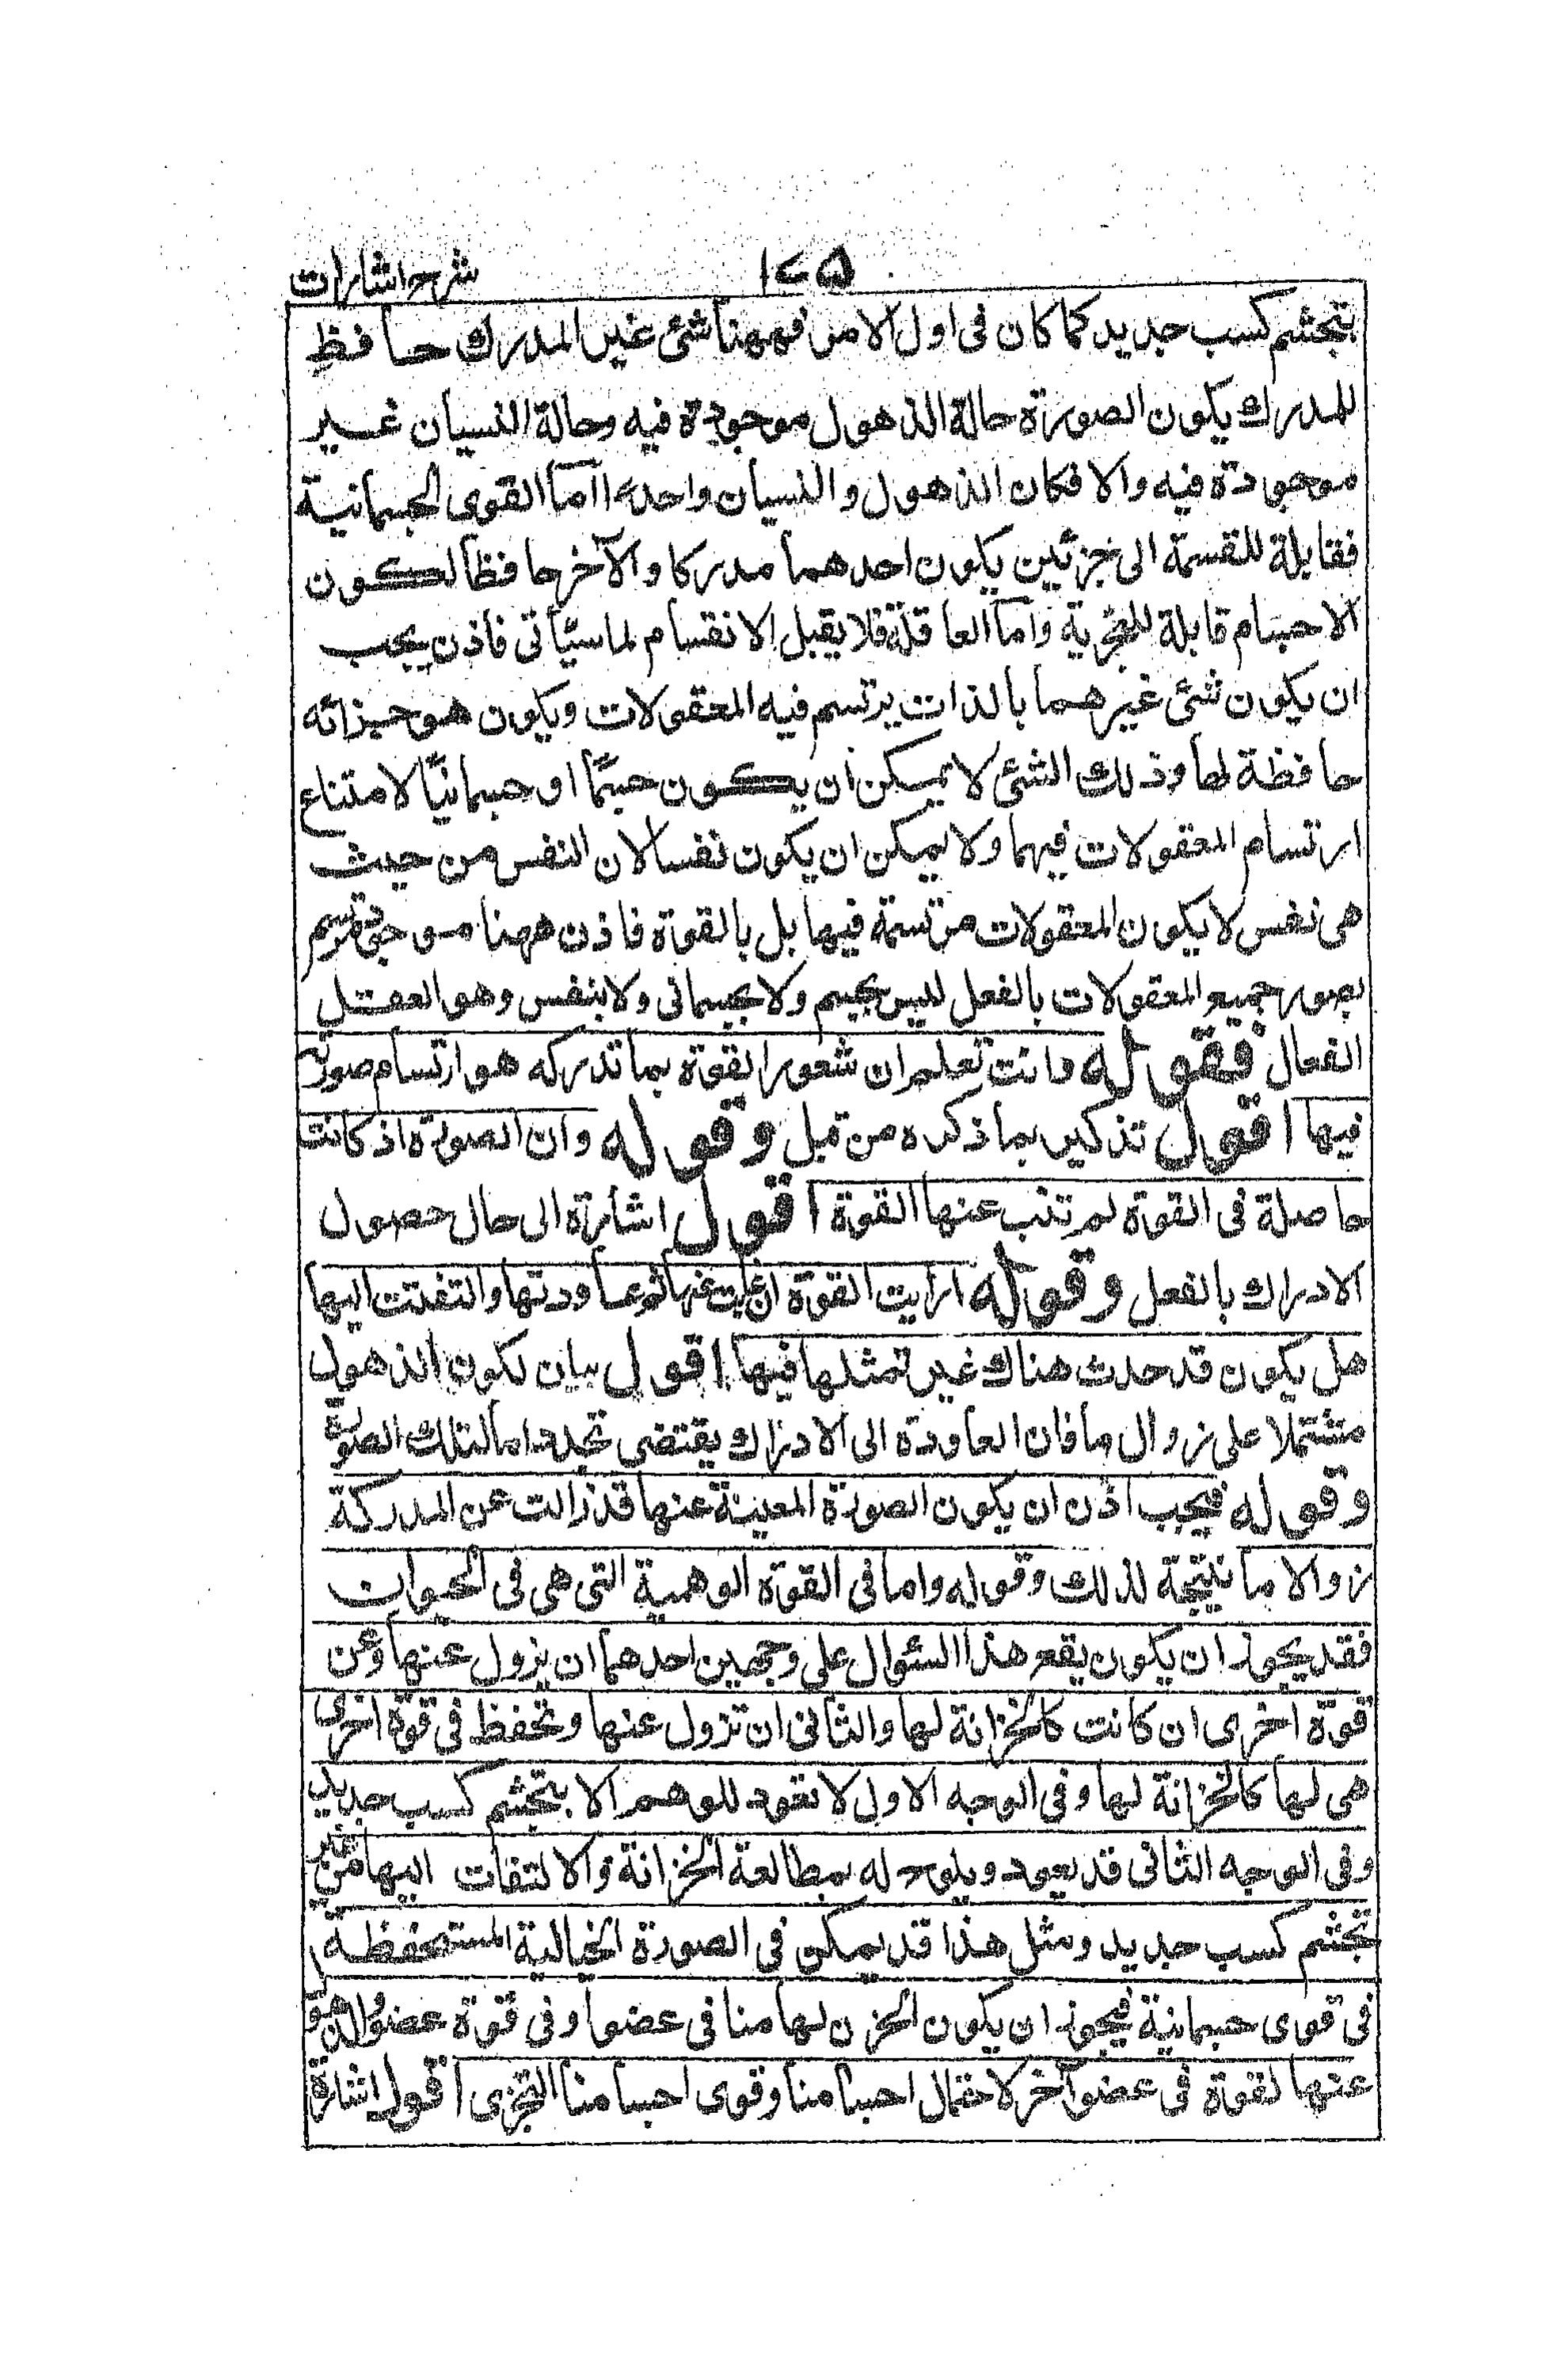 ١٧٥ شرح اشارات
بتجشم كسب جديد كما كان فى اول الامر فههنا شئ غير المدرك حافظ
للمدرك يكون الصورة حالة الذهول موجودة فيه وحالة النسيان غير
موجودة فيه والا فكان الذهول والنسيان واحدا اما القوى الجسمانية
فقابلة للقسمة الى جزئين يكون احدهما مدركا والآخر حافظا لكون
الاجسام قابلة للتجزية واما العاقلة فلا يقبل الانقسام لما سيأتى فاذن يجب
ان يكون شئ غيرهما بالذات يرتسم فيه المعقولات ويكون هو خزانه
حافظة لها وذلك الشئ لا يمكن ان يكون جسمًا او جسمانيًا لامتناع
ارتسام المعقولات فيهما ولا يمكن ان يكون نفسا لان النفس من حيث
هى نفس لا يكون المعقولات مرتسمة فيها بل بالقوة فاذن ههنا موجود مرتسم
بصور جميع المعقولات بالفعل ليس بجسم ولا بجسمانى ولا بنفس وهو العقل
الفعال فقوله وانت تعلم ان شعور القوة بما تدركه هو ارتسام صورته
فيها اقول تذكير بما ذكره من قبل وقوله وان الصورة اذ كانت
حاصلة فى القوة لم تغب عنها القوة اقول اشارة الى حال حصول
الادراك بالفعل وقوله ارايت القوة ان غابت عنها ثم عاودتها والتفتت اليها
هل يكون قد حدث هناك غير تمثلها فيها اقول بيان لكون الذهول
مشتملا على زوال ما فان العاودة الى الادراك يقتضى تجددا ما لتلك الصورة
وقوله فيجب اذن ان يكون الصورة المعينة عنها قد زالت عن المدركة
زوالا ما نتيجة لذلك وقوله واما فى القوة الوهمية التى هى فى الحيوان
فقد يجوز ان يكون يقع هذا السئوال على وجهين احدهما ان يزول عنها وعن
قوة اخرى ان كانت كالخزانة لها والثانى ان تزول عنها وتحفظ فى قوة اخرى
هى لها كالخزانة لها وفى الوجه الاول لا تعود للوهم الا بتجشم كسب جديد
وفى الوجه الثانى قد يعود ويلوح له بمطالعة الخزانة والالتفات اليها من غير
تجشم كسب جديد ومثل هذا قد يمكن فى الصورة الخيالية المستحفظة
فى قوى جسمانية فيجوز ان يكون الخزن لها منا فى عضو او فى قوة عضو
عنها لقوة فى عضو آخر لاحتمال اجسامنا وقوى اجسامنا التجزى اقول اشارة